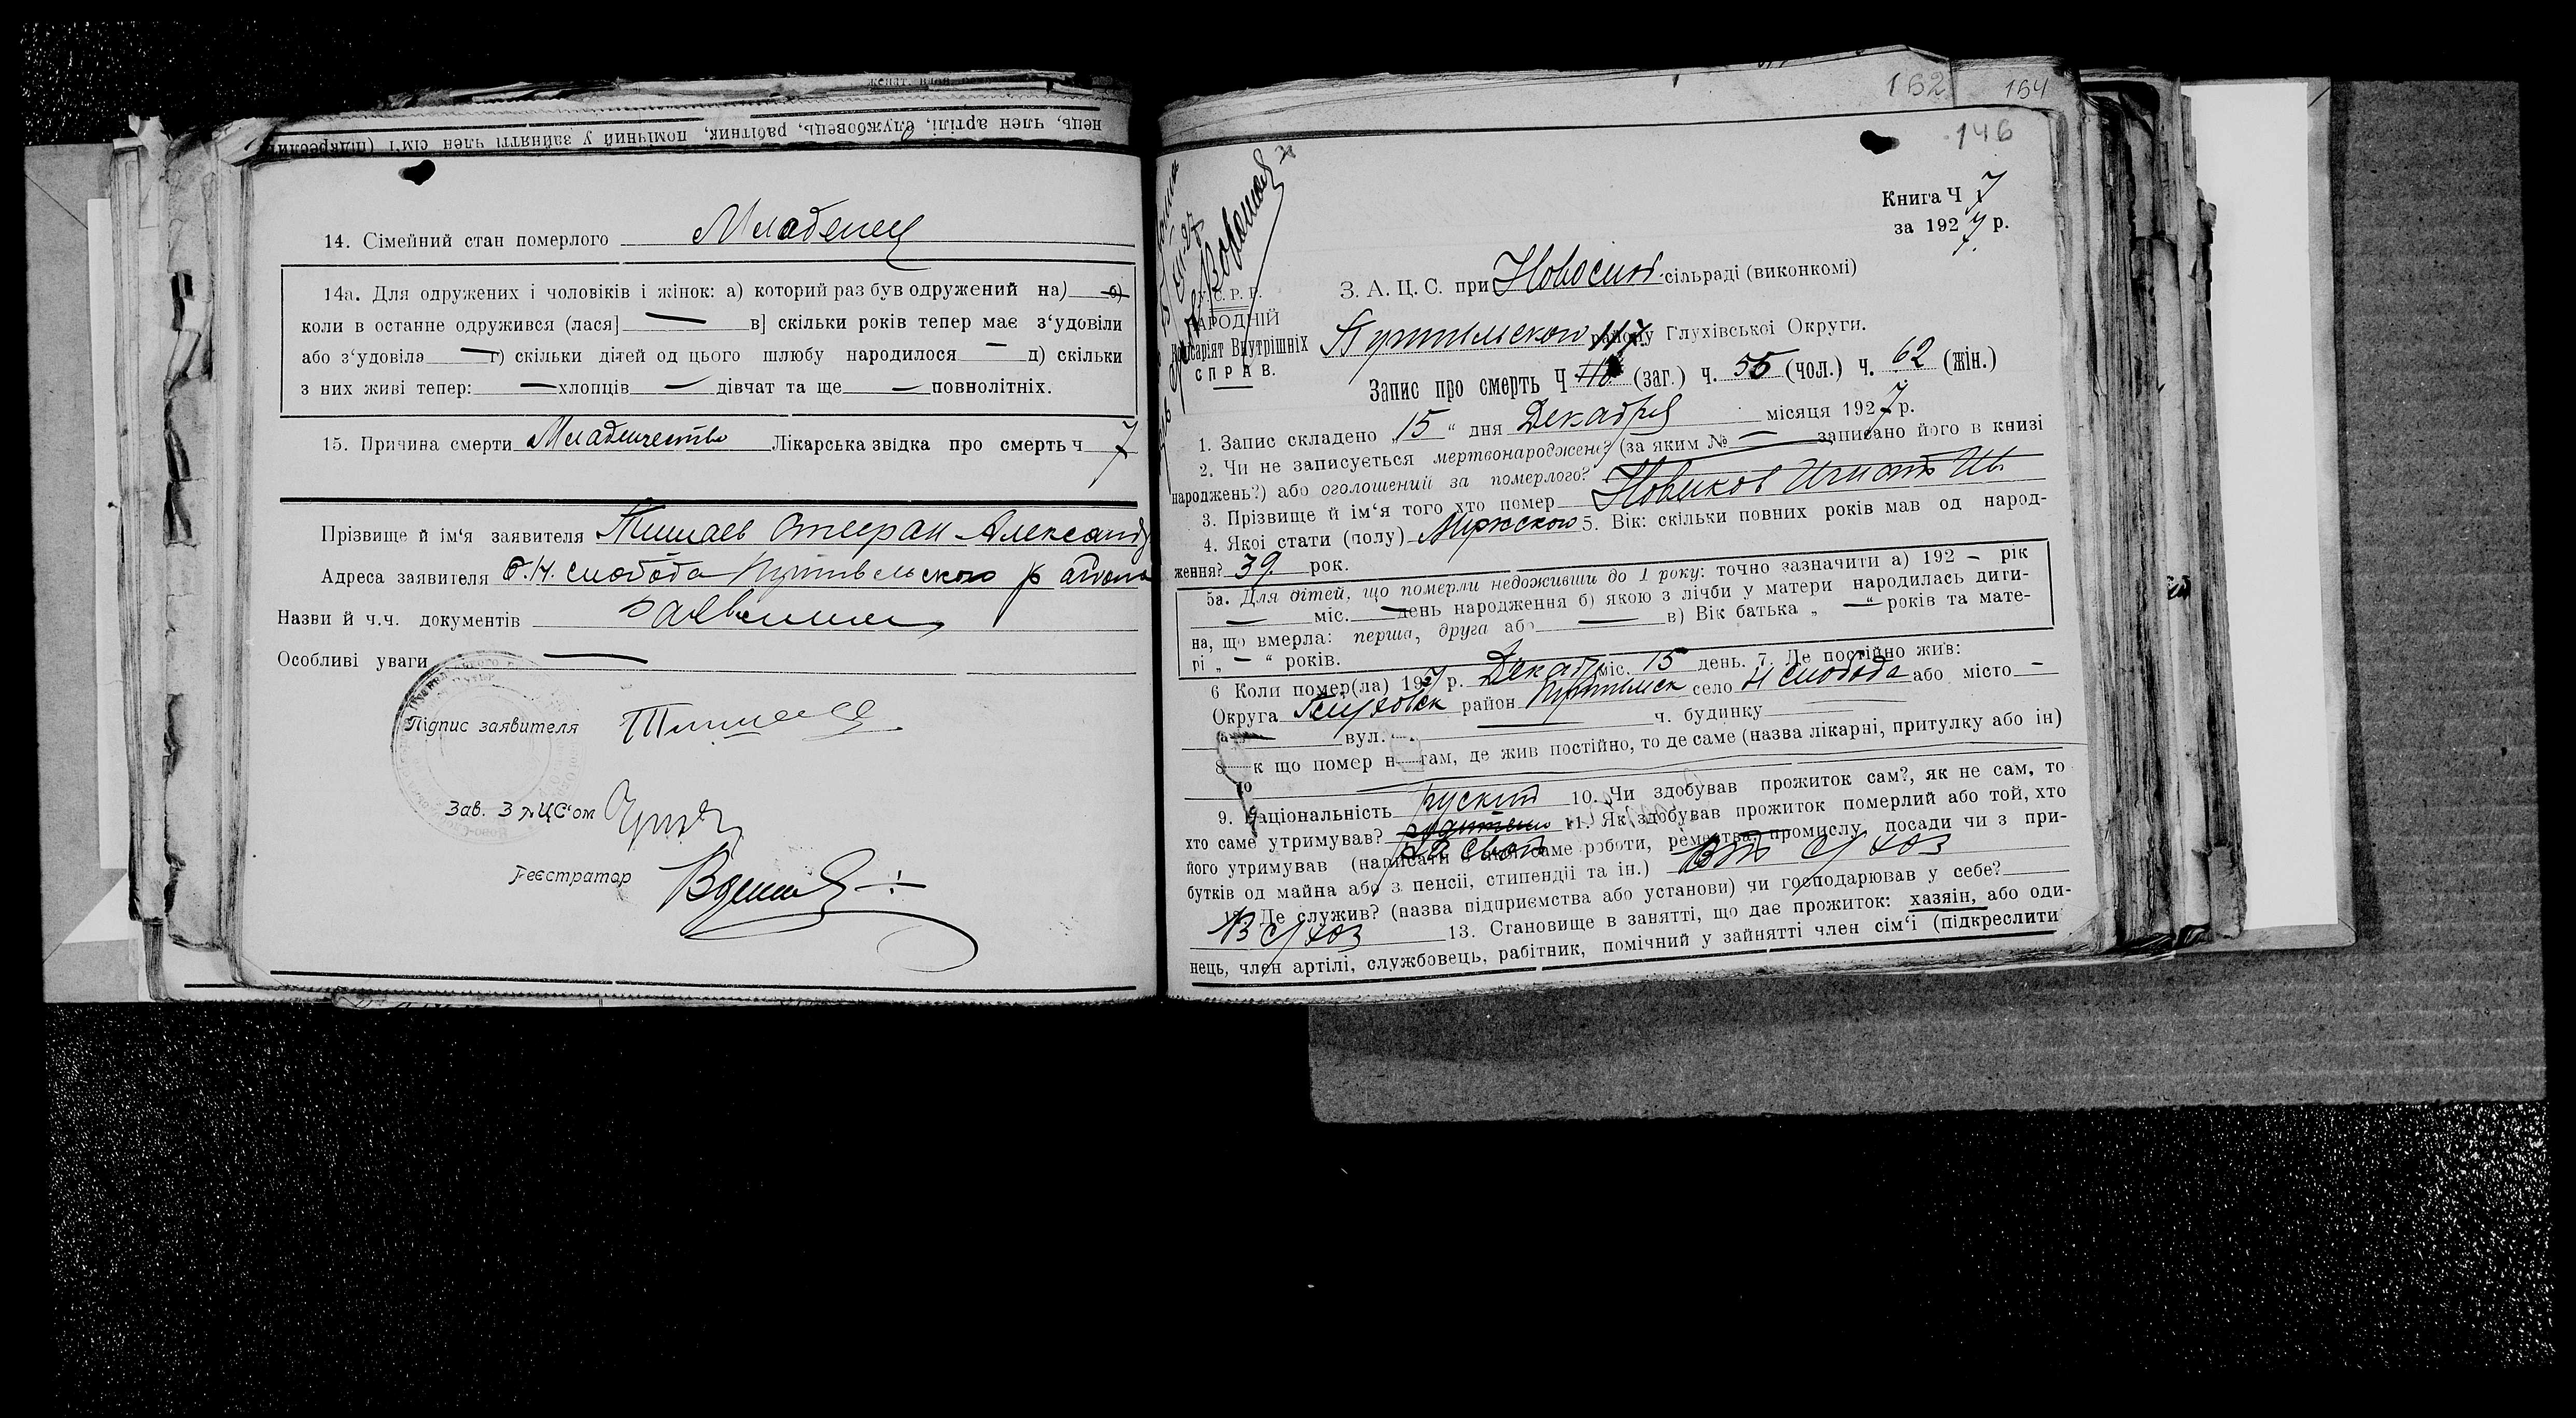 нець, член артілі, службовець, рабітник, помічний у зайнятті член сім'ї (підкреслити
14. Сімейний стан померлого Младенец
14а. Для одружених і чоловіків і жінок: а) которий раз був одружений на) — б)
коли в останне одружився (лася] — в] скільки років тепер має з'удовіли
або з'удовіла — г) скільки дітей од цього шлюбу народилося — д) скільки
з них живі тепер: — хлопців — дівчат та ще — повнолітніх.
15. Причина смерти Младенчество Лікарська звідка про смерть ч 7
Прізвище й ім'я заявителя Тишаев Степан Александ
Адреса заявителя С. Н. слобода Путивельского района
Назви й ч.ч. документів Заявление
Особливі уваги —
Підпис заявителя Тишаев
Зав. ЗАЦС'ом
Реєстратор
162 164
146
Книга Ч 7
за 1927 р.
У.С.Р.Р.
НАРОДНІЙ
Комісаріят Внутрішніх
СПРАВ.
З. А. Ц. С. при Новослоб. сільраді (виконкомі)
Путивльском району Глухівської Округи.
117
Запис про смерть Ч (заг.) ч. 55 (чол.) ч. 62 (жін.)
1. Запис складено „15" дня Декабря місяця 1927 р.
2. Чи не записується мертвонароджене? (за яким № — записано його в книзі
народжень?) або оголошений за померлого?
3. Прізвище й ім'я того хто помер Новиков Игнат Ив
4. Якої стати (полу) Мужского 5. Вік: скільки повних років мав од народ-
ження? 39 рок.
5а. Для дітей, що померли недоживши до 1 року: точно зазначити а) 192 — рік
— міс. — день народження б) якою з лічби у матери народилась дити-
на, що вмерла: перша, друга або — в) Вік батька „ — " років та мате-
рі „ — " років.
6 Коли помер(ла) 1927 р. Декабр міс. 15 день. 7. Де постійно жив:
Округа Глуховск район Путивльск село Н Слобода або місто —
вул. — ч. будинку
8 к що помер н там, де жив постійно, то де саме (назва лікарні, притулку або ін)
9. Національність Руский 10. Чи здобував прожиток сам?, як не сам, то
хто саме утримував? 11. Як здобував прожиток померлий або той, хто
його утримував (написати з якої саме роботи, ремества, промислу, посади чи з при-
бутків од майна або з пенсії, стипендії та ін.) От с/хоз
12. Де служив? (назва підприємства або установи) чи господарював у себе?
В с/хоз 13. Становище в занятті, що дає прожиток: хазяїн, або оди-
нець, член артілі, службовець, рабітник, помічний у зайнятті член сім'ї (підкреслити